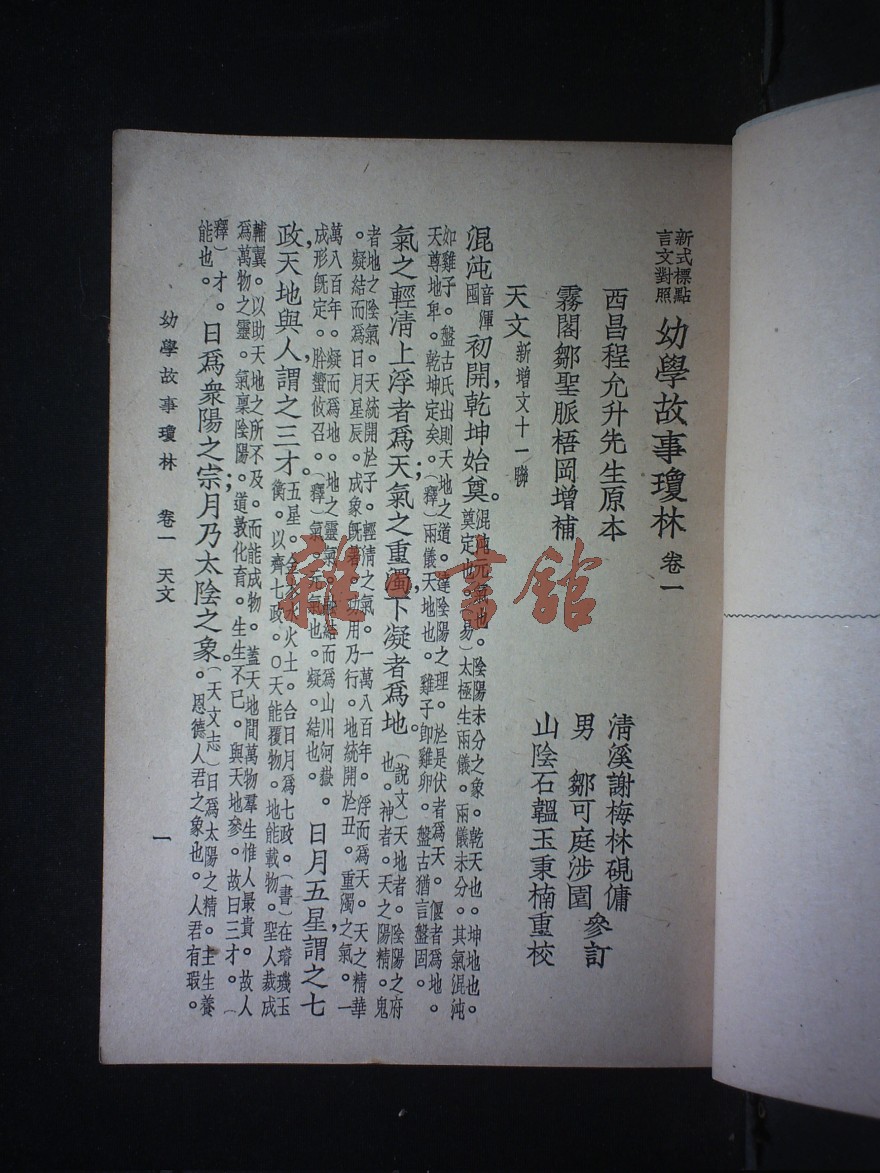 新式標點
言文對照
幼學故事瓊林 卷一
西昌程允升先生原本
霧閣鄒聖脈梧岡增補
清溪謝梅林硯傭
男 鄒可庭涉園 參訂
山陰石韞玉秉楠重校
天文 新增文十一聯
混沌 音渾國 初開，乾坤始奠。
混沌元氣也。陰陽未分之象。乾天也。坤地也。
奠定也。（易）太極生兩儀。兩儀未分。其氣混沌
如雞子。盤古氏出則天地之道。達陰陽之理。於是伏者為天。偃者為地。
天尊地卑。乾坤定矣。（釋）兩儀天地也。雞子卽雞卵。盤古猶言盤固。
氣之輕清上浮者爲天；氣之重濁下凝者爲地。
（說文）天地者。陰陽之府
也。神者。天之陽精。鬼
者地之陰氣。天統開於子。輕清之氣。一萬八百年。浮而爲天。天之精華
。凝結而爲日月星辰。成象旣著。功用乃行。地統開於丑。重濁之氣。一
萬八百年。凝而爲地。地之靈氣。融結而爲山川河嶽。
成形旣定。肸蠁攸召。（釋）氣。元氣也。凝。結也。
日月五星，謂之七
政，天地與人，謂之三才。
五星。金木水火土。合日月爲七政。（書）在璿璣玉
衡。以齊七政。〇天能覆物。地能載物。聖人裁成
輔襄。以助天地之所不及。而能成物。蓋天地間萬物羣生惟人最貴。故人
爲萬物之靈。氣稟陰陽。道敦化育。生生不已。與天地參。故曰三才。（
釋）才。
能也。
日爲衆陽之宗；月乃太陰之象。
（天文志）日爲太陽之精。主生養
恩德人君之象也。人君有瑕。
幼學故事瓊林 卷一 天文
一
雜·書館